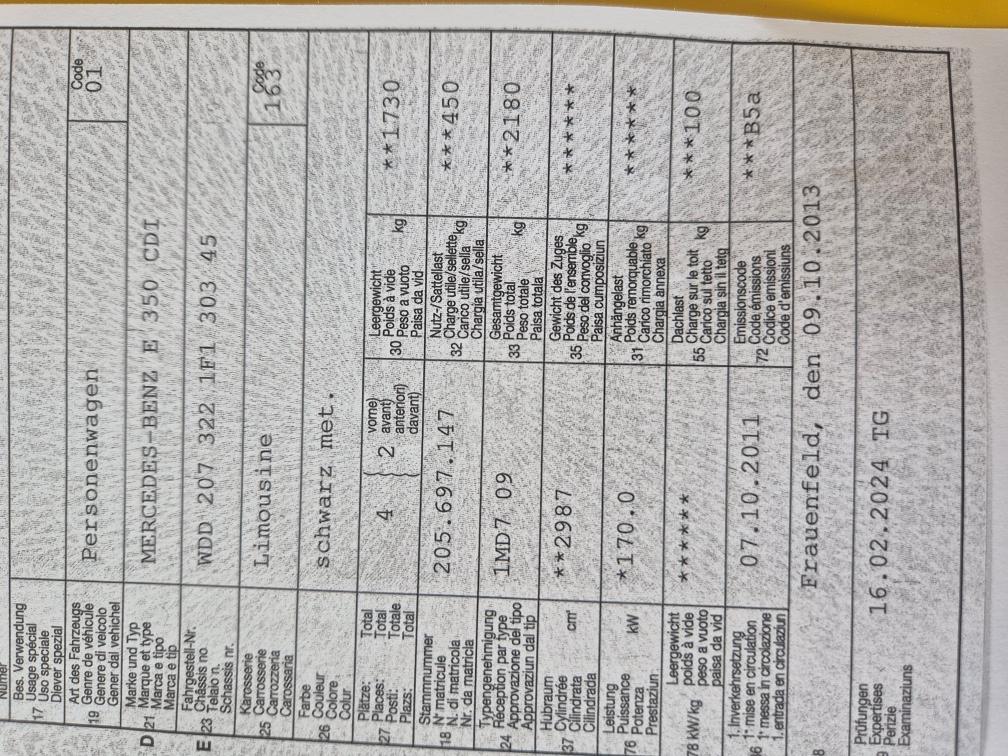 Numer
17
Bes. Verwendung
Usage spécial
Uso speciale
Diever spezial
19
Art des Fahrzeugs
Genre de véhicule
Genere di veicolo
Gener dal vehichel
Personenwagen
Code
01
D 21
Marke und Typ
Marque et type
Marca e tipo
Marca e tip
MERCEDES-BENZ E 350 CDI
E 23
Fahrgestell-Nr.
Châssis no
Telaio n.
Schassis nr.
WDD 207 322 1F1 303 45
25
Karosserie
Carrosserie
Carrozzeria
Carossaria
Limousine
Code
163
26
Farbe
Couleur
Colore
Colur
schwarz met.
27
Plätze: Total
Places: Total
Posti: Totale
Plazs: Total
4 { 2
vorne)
avant)
anteriori)
davant)
30
Leergewicht
Poids à vide
Peso a vuoto
Paisa da vid
kg
**1730
18
Stammnummer
N° matricule
N. di matricola
Nr. da matricla
205.697.147
32
Nutz-/Sattellast
Charge utile/sellette
Carico utile/sella
Chargia utila/sella
kg
***450
24
Typengenehmigung
Réception par type
Approvazione del tipo
Approvaziun dal tip
1MD7 09
33
Gesamtgewicht
Poids total
Peso totale
Paisa totala
kg
**2180
37
Hubraum
Cylindrée
Cilindrata
Cilindrada
cm³
**2987
35
Gewicht des Zuges
Poids de l'ensemble
Peso del convoglio
Paisa cumposiziun
kg
*******
76
Leistung
Puissance
Potenza
Prestaziun
kW
*170.0
31
Anhängelast
Poids remorquable
Carico rimorchiato
Chargia annexa
kg
*******
78 kW/kg
Leergewicht
poids à vide
peso a vuoto
paisa da vid
******
55
Dachlast
Charge sur le toit
Carico sul tetto
Chargia sin il tetg
kg
***100
36
1. Inverkehrsetzung
1re mise en circulation
1a messa in circolazione
1. entrada en circulaziun
07.10.2011
72
Emissionscode
Code émissions
Codice emissioni
Code d'emissiuns
***B5a
8
Frauenfeld, den 09.10.2013
Prüfungen
Expertises
Perizie
Examinaziuns
16.02.2024 TG